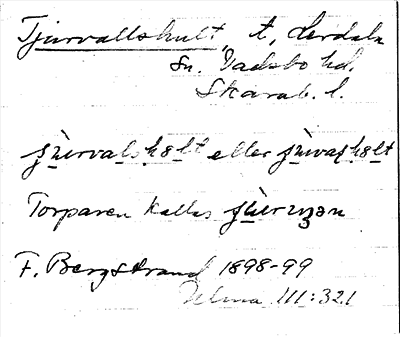 Tjurvallshult, t, Lerdala
sn. Vadsbo hd.
Skarab. l.
ʃùrvalshɵlt eller ʃùvashɵlt
Torparen kallas ʃùrvʒən
F. Bergstrand 1898-99
III:321